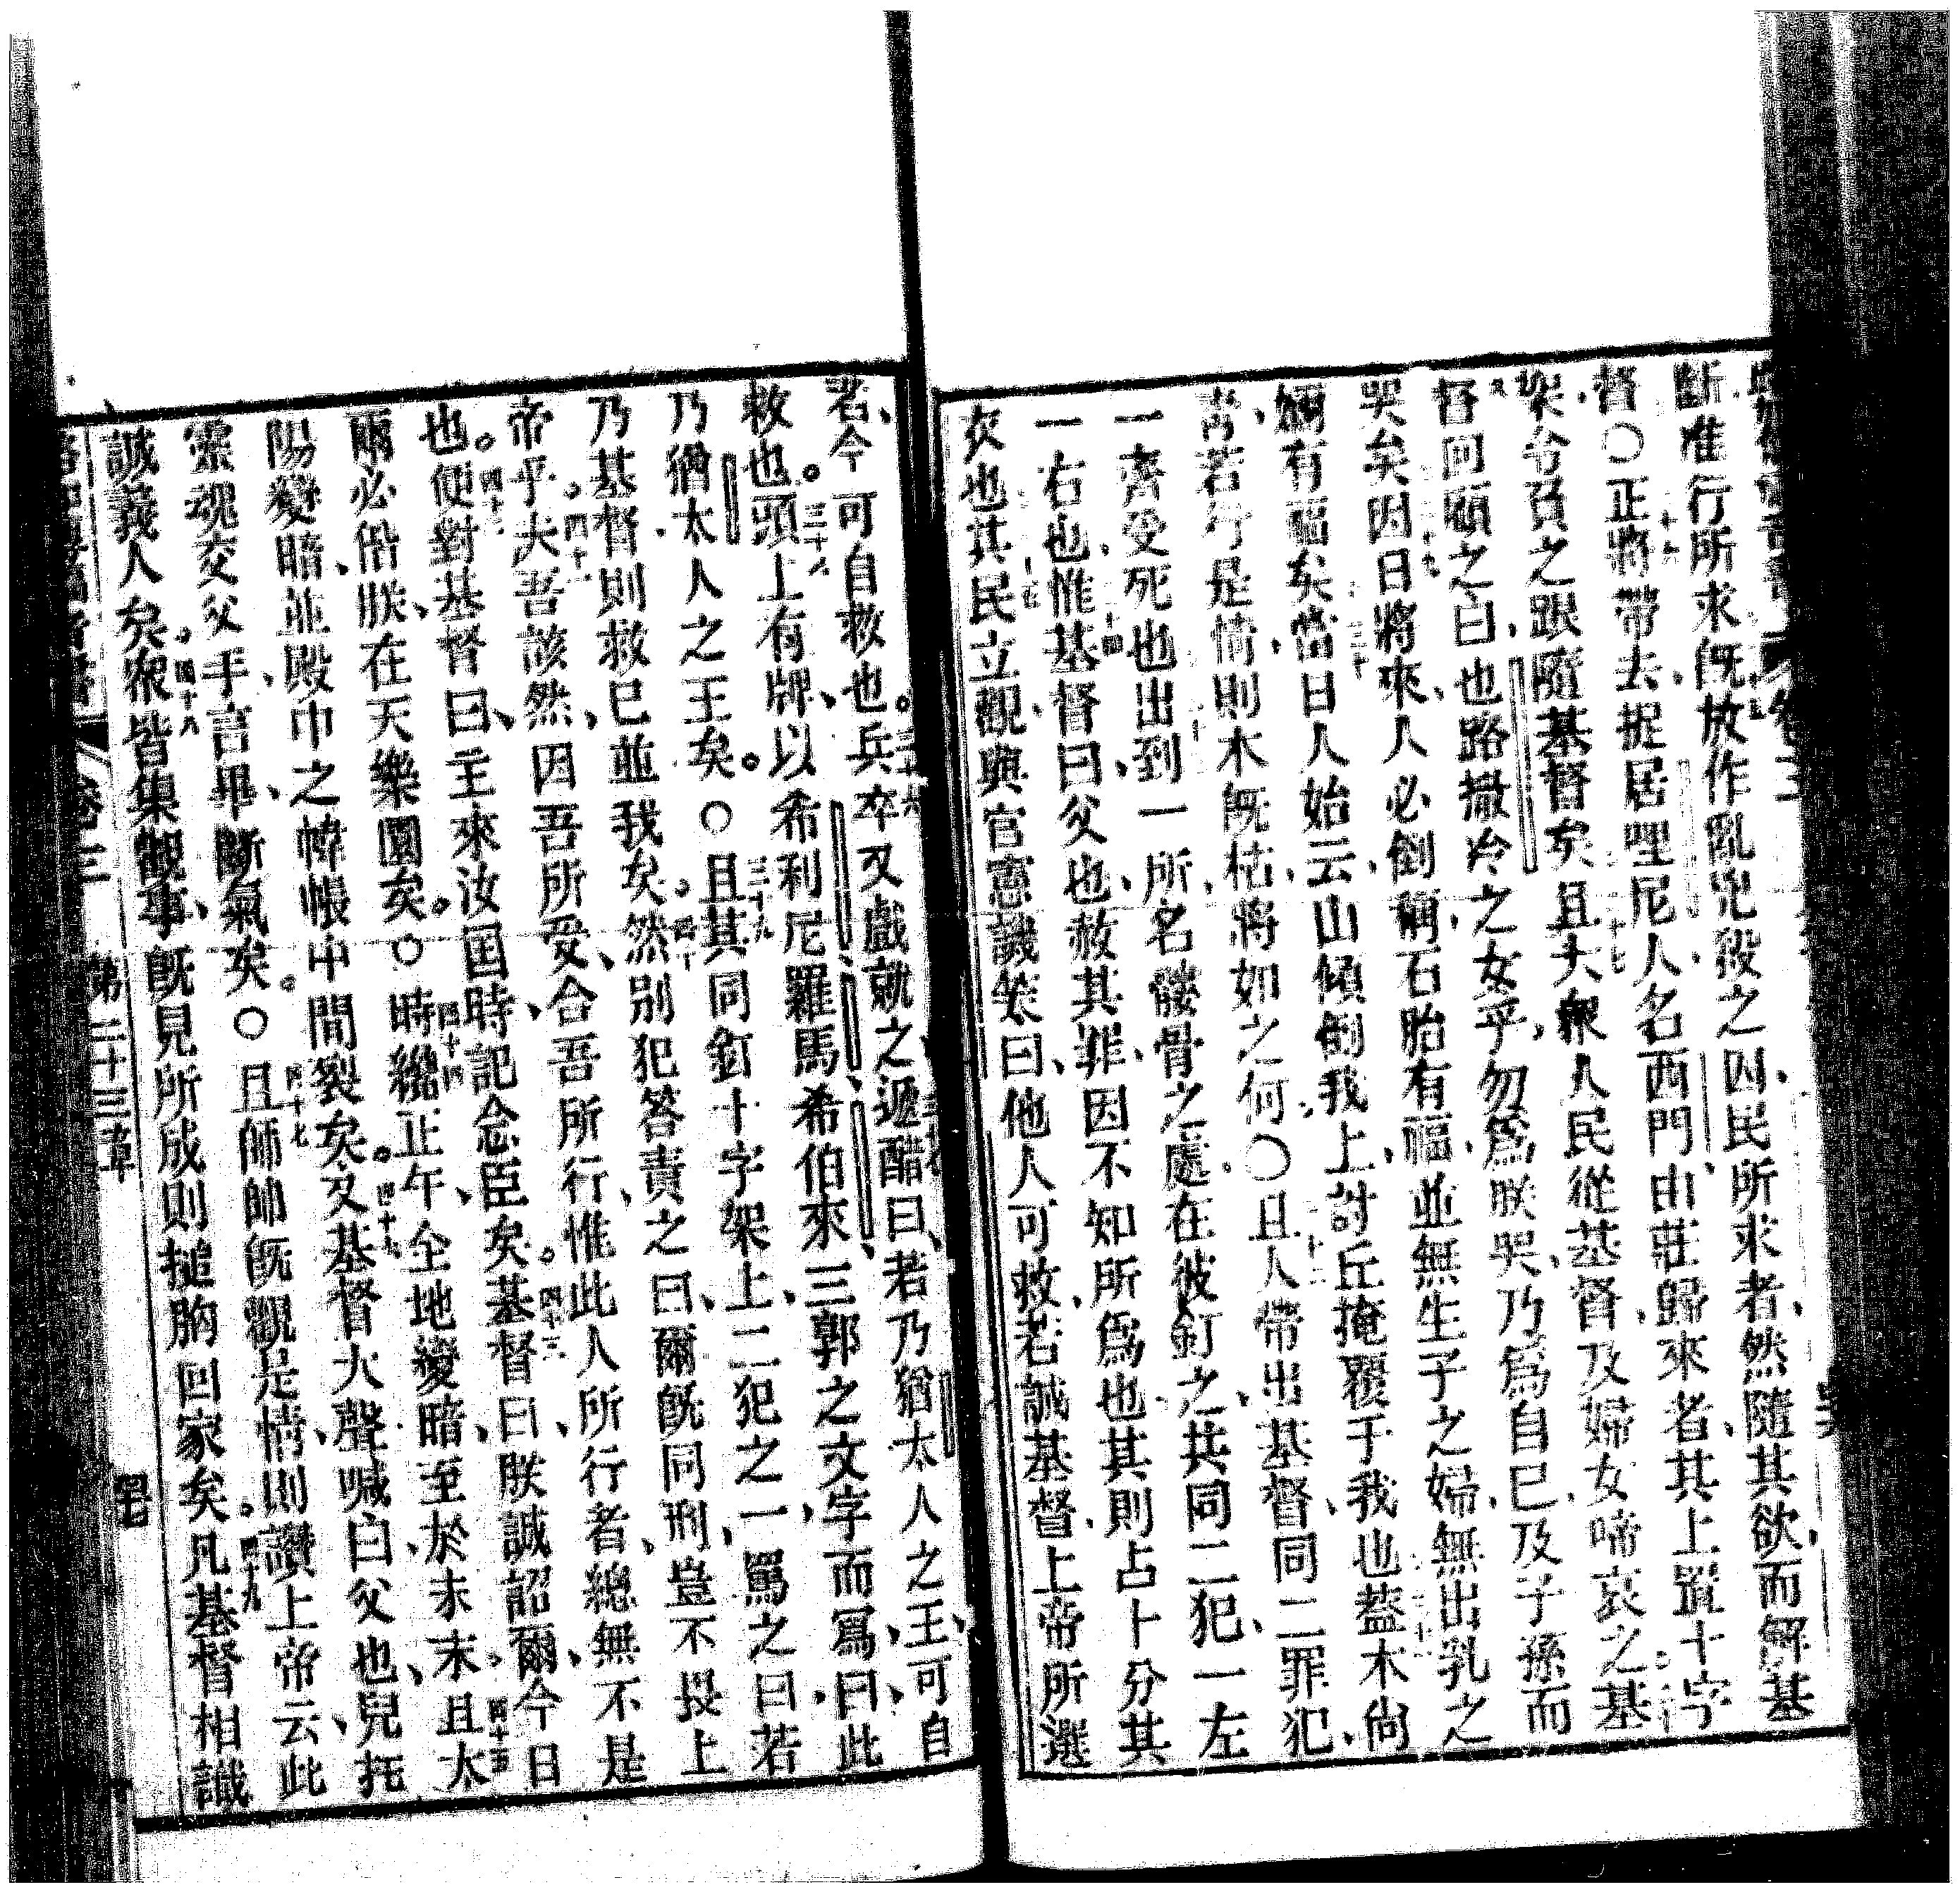 斷准行所求既放作亂兇殺之囚民所求者然隨其欲而解基
督〇正將帶去捉居哩尼人名西門由莊歸來者其上置十字
架令負之跟隨基督矣且大衆人民從基督及婦女啼哀之基
督回顧之曰也路撒冷之女乎勿爲朕哭乃爲自己及子孫而
哭矣因日將來人必倒稱石胎有福並無生子之婦無出乳之
嬭有福矣當日人始云山傾倒我上討丘掩覆于我也蓋木尚
青若行是情則木既枯將如之何〇且人帶出基督同二罪犯
一齊受死也出到一所名髏骨之處在彼釘之共同二犯一左
一右也惟基督曰父也赦其罪因不知所爲也其則占卜分其
衣也其民立觀與官憲譏笑曰他人可救若誠基督上帝所選
者、今可自救也。兵卒又戲就之遞醋曰、若乃猶太人之王、可自
救也。三十八頭上有牌、以希利尼、羅馬、希伯來、三郭之文字而寫、曰、此
乃猶太人之王矣。〇三十九且其同釘十字架上、二犯之一、罵之曰、若
乃基督則救己並我矣。四十然別犯答責之曰、爾既同刑、豈不畏上
帝乎。四十一夫吾該然、因吾所受、合吾所行、惟此人所行者、總無不是
也。四十二便對基督曰、主來汝国時、記念臣矣。四十三基督曰、朕誠詔爾、今日
爾必偕朕、在天樂園矣。〇四十四時纔正午、全地變暗、至於未末、四十五且太
陽變暗、並殿巾之幃帳中間裂矣。四十六及基督大聲喊曰、父也、兒托
靈魂交父手、言畢、斷氣矣。〇四十七且師帥既觀是情、則讚上帝云、此
誠義人矣。四十八衆皆集觀事、既見所成則搥胸回家矣。四十九凡基督相識
卷三 第二十三章 四七